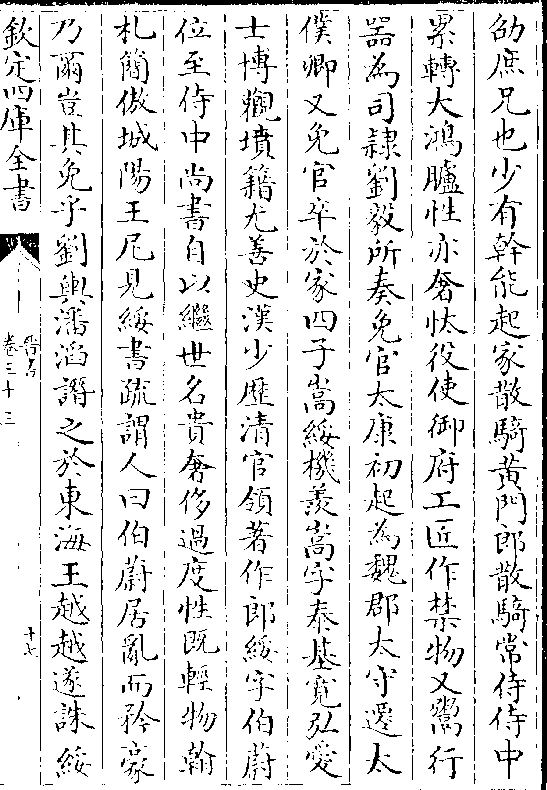 劭庶兄也少有幹能起家散騎黃門郎散騎常侍侍中
累轉大鴻臚性亦奢忲役使御府工匠作禁物又鬻行
器為司隸劉毅所奏免官太康初起為魏郡太守遷太
僕卿又免官卒於家四子嵩綏機羨嵩字泰基寛弘愛
士博觀墳籍尤善史漢少歴清官領著作郎綏字伯蔚
位至侍中尚書自以繼世名貴奢侈過度性既輕物翰
札簡傲城陽王尼見綏書疏謂人曰伯蔚居亂而矜豪
乃爾豈其免乎劉輿潘滔譖之於東海王越越遂誅綏
欽定四庫全書
晉書
卷三十三
十七